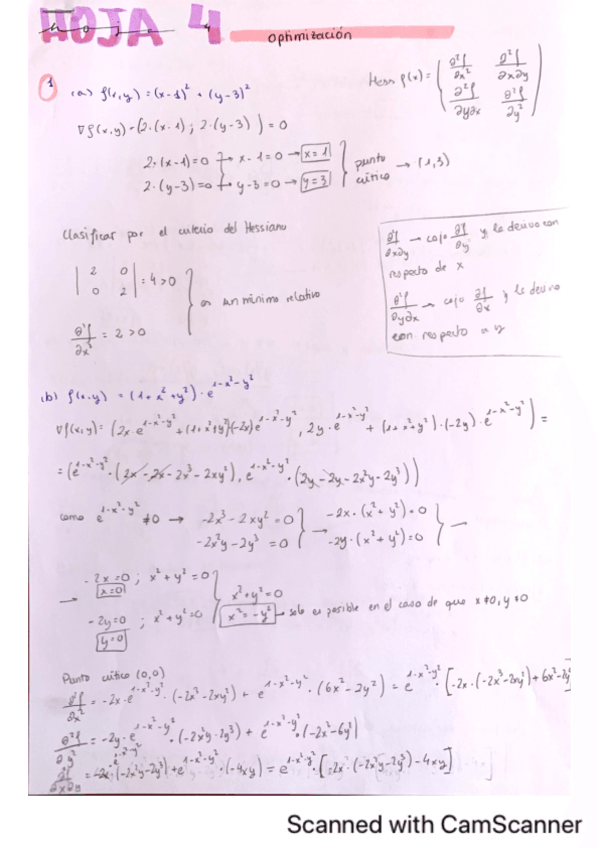 HOJA 4
Optimización
1 (a) f(x,y) = (x-1)² + (y-3)²
Hess f(x) = ( ∂²f/∂x² ∂²f/∂x∂y
∂²f/∂y∂x ∂²f/∂y² )
∇f(x,y) = (2·(x-1); 2·(y-3)) = 0
2·(x-1)=0 → x-1=0 → x=1
2·(y-3)=0 → y-3=0 → y=3 } punto crítico → (1,3)
Clasificar por el criterio del Hessiano
| 2 0
0 2 | = 4 > 0
∂²f/∂x² = 2 > 0 } es un mínimo relativo
∂²f/∂x∂y → cojo ∂f/∂y y la derivo con
respecto de x
∂²f/∂y∂x → cojo ∂f/∂x y la derivo
con respecto a y
(b) f(x,y) = (1+x²+y²)·e^(1-x²-y²)
∇f(x,y) = (2x·e^(1-x²-y²) + (1+x²+y²)(-2x)e^(1-x²-y²), 2y·e^(1-x²-y²) + (1+x²+y²)·(-2y)·e^(1-x²-y²)) =
= (e^(1-x²-y²)·(2x-2x-2x³-2xy²), e^(1-x²-y²)·(2y-2y-2x²y-2y³))
como e^(1-x²-y²) ≠0 → -2x³-2xy²=0
-2x²y-2y³=0 } → -2x·(x²+y²)=0
-2y·(x²+y²)=0 } →
→ -2x=0; x²+y²=0
x=0
-2y=0; x²+y²=0
y=0
x²+y²=0
x²=-y² → solo es posible en el caso de que x≠0, y≠0
Punto crítico (0,0)
∂²f/∂x² = -2x·e^(1-x²-y²)·(-2x³-2xy²) + e^(1-x²-y²)·(6x²-2y²) = e^(1-x²-y²)·[-2x·(-2x³-2xy²)+6x²-2y²]
∂²f/∂y² = -2y·e^(1-x²-y²)·(-2x²y-2y³) + e^(1-x²-y²)·(-2x²-6y²)
∂²f/∂x∂y = -2x·e^(1-x²-y²)·(-2x²y-2y³)+e^(1-x²-y²)·(-4xy) = e^(1-x²-y²)·[-2x·(-2x²y-2y³)-4xy]
Scanned with CamScanner